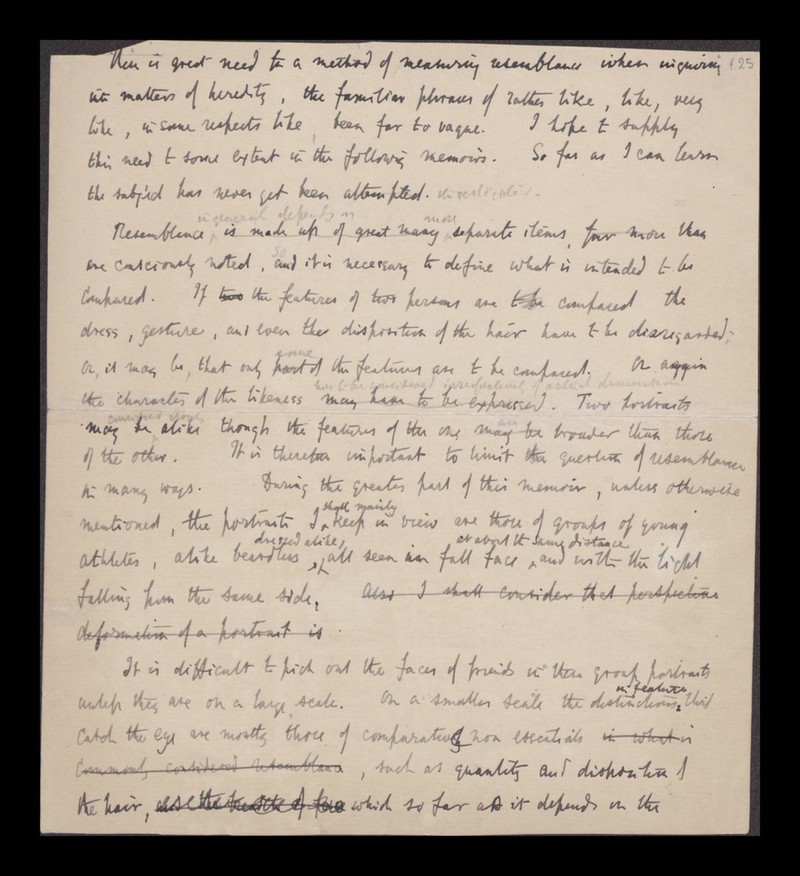 There is great need for a method of measuring resemblance when inquiring f.25
into matters of heredity, the familiar phrases of rather like, like, very
like, in some respects like, been far to vague. I hope to supply
this need to some extent in the following memoirs. So far as I can learn
the subject has never yet been attempted. investigated.
in general depends on more
Resemblance is made up of great many separate items, far more than
are consciously noted, so and it is necessary to define what is intended to be
compared. If two the features of two persons are to be compared the
dress, gesture, and even the disposition of the hair have to be disregarded;
some
or, it may be, that only part of the features are to be compared. Or again
has to be considered irrespectively of actual dimensions
the character of the likeness may have to be expressed. Two portraits
may be alike though the features of the one may be are broader than those
of the other. It is therefore important to limit the question of resemblance
in many ways. During the greater part of this memoir, unless otherwise
shall mainly
mentioned, the portraits I keep in view are those of groups of young
dressed alike, at about the same distance
athletes, alike beardless, all seen in full face, and with the light
falling from the same side. Also I shall consider that perspective
deformation of a portrait is
It is difficult to pick out the faces of friends in these group portraits
in feature
unless they are on a large scale. On a smaller scale the distinctions, that
catch the eye are mostly those of comparatively non essentials in what is
commonly considered resemblance, such as quantity and disposition of
the hair, which so far as it depends on the